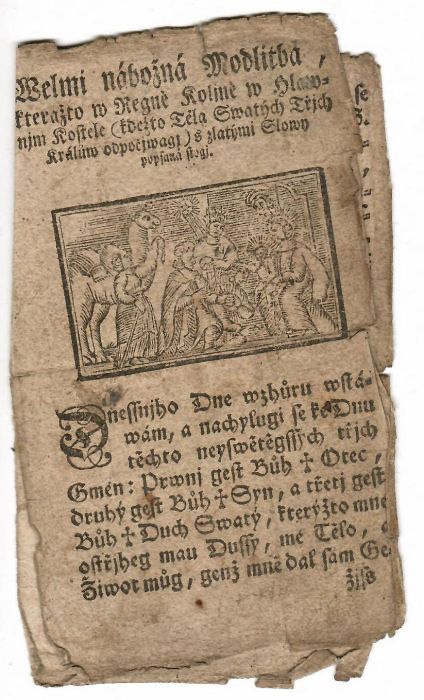 Welmi nábožná Modlitba,
kteražto w Regně Koljně w Hlaw-
njm Kostele (kdežto Těla Swatých Třjch
Králůw odpočjwagj) s zlatými Slowy
popsaná stogj.
Dnessnjho Dne wzhůru wstá-
wám, a nachylugi se ke Dnu
těchto neyswětěgssých třjch
Gmén: Prwnj gest Bůh ✝ Otec,
druhý gest Bůh ✝ Syn, a třetj gest
Bůh ✝ Duch Swatý, kterýžto mne
ostřjheg mau Dussy, mé Tělo, a
Žiwot můg, genž mně dal sám Ge-
žiss